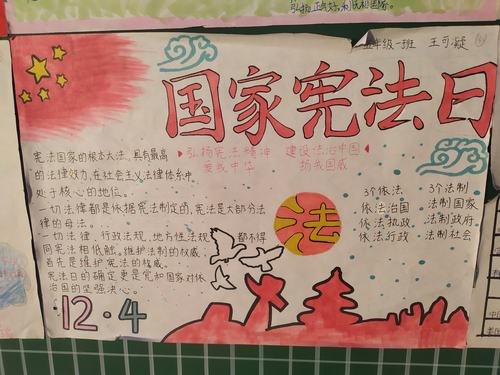 弘扬正义
五年级一班 王可凝
国家宪法日
弘扬宪法精神 建设法治中国
爱我中华 扬我国威
宪法国家的根本大法,具有最高
的法律效力,在社会主义法律体系中
处于核心的地位。
一切法律都是依据宪法制定的,宪法是大部分法
律的母法。
一切法律,行政法规,地方性法规 都不得
同宪法相抵触。维护法制的权威,
首先是维护宪法的权威。
宪法日的确定更是党和国家对依
法治国的坚强决心。
法
3个依法 3个法制
依法治国 法制国家
依法执政 法制政府
依法行政 法制社会
12·4